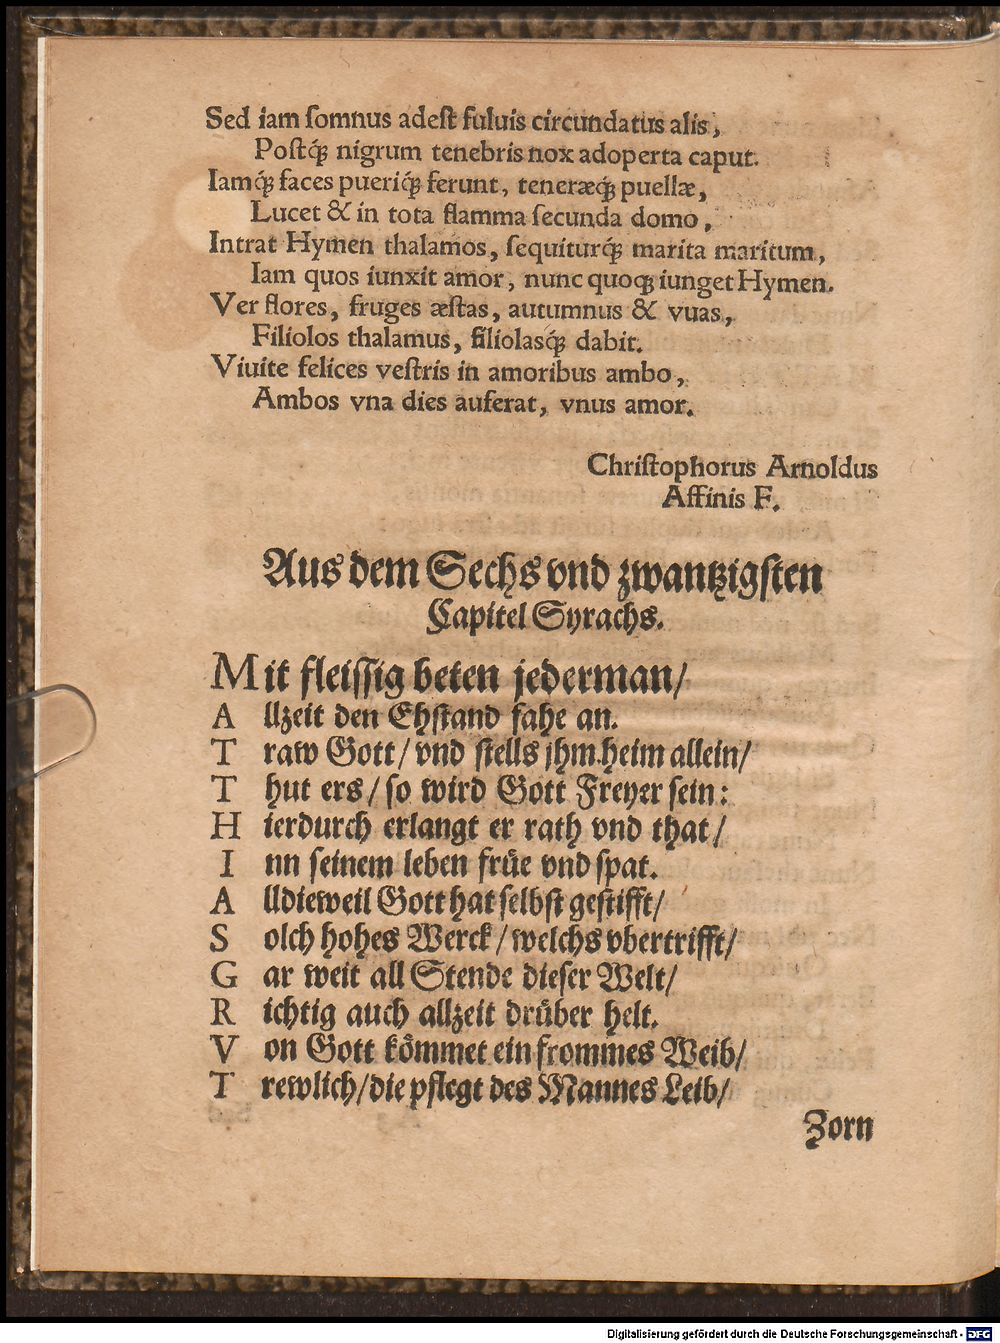 Sed iam ſomnus adeſt fuluis circundatus alis,
Poſtq́; nigrum tenebris nox adoperta caput.
Iamq́; faces pueriq́; ferunt, teneræq́; puellæ,
Lucet & in tota flamma ſecunda domo,
Intrat Hymen thalamos, ſequiturq́; marita maritum,
Iam quos iunxit amor, nunc quoq; iunget Hymen.
Ver flores, fruges æſtas, autumnus & vuas,
Filiolos thalamus, filiolasq́; dabit.
Viuite felices veſtris in amoribus ambo,
Ambos vna dies auferat, vnus amor.
Chriſtophorus Arnoldus
Affinis F.
Aus dem Sechs vnd zwantzigſten
Capitel Syrachs.
Mit fleiſſig beten jederman/
Allzeit den Ehſtand fahe an.
Traw Gott/ vnd ſtells jhm heim allein/
Thut ers/ ſo wird Gott Freyer ſein:
Hierdurch erlangt er rath vnd that/
Inn ſeinem leben früe vnd ſpat.
Alldieweil Gott hat ſelbſt geſtifft/
Solch hohes Werck/ welchs vbertrifft/
Gar weit all Stende dieſer Welt/
Richtig auch allzeit drüber helt.
Von Gott kömmet ein frommes Weib/
Trewlich/ die pflegt des Mannes Leib/
Zorn
Digitalisierung gefördert durch die Deutsche Forschungsgemeinschaft - DFG